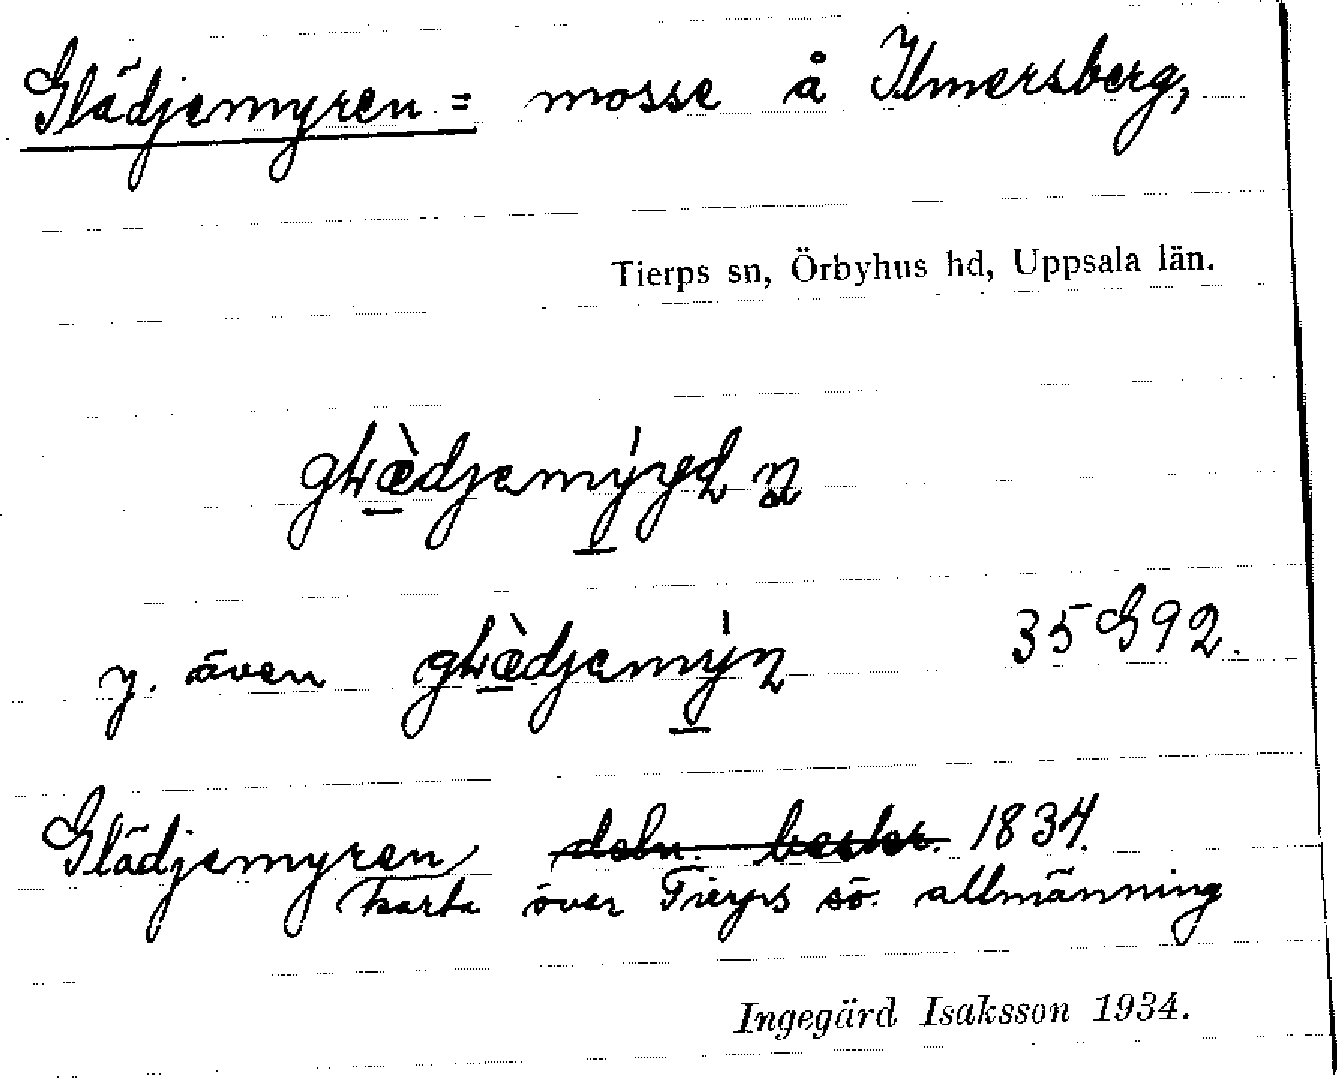 Glädjemyren = mosse å Ilmersberg,
Tierps sn, Örbyhus hd, Uppsala län.
y. även
35 G 92.
Glädjemyren 1834.
karta över Tierps sö. allmänning
Ingegärd Isaksson 1934.